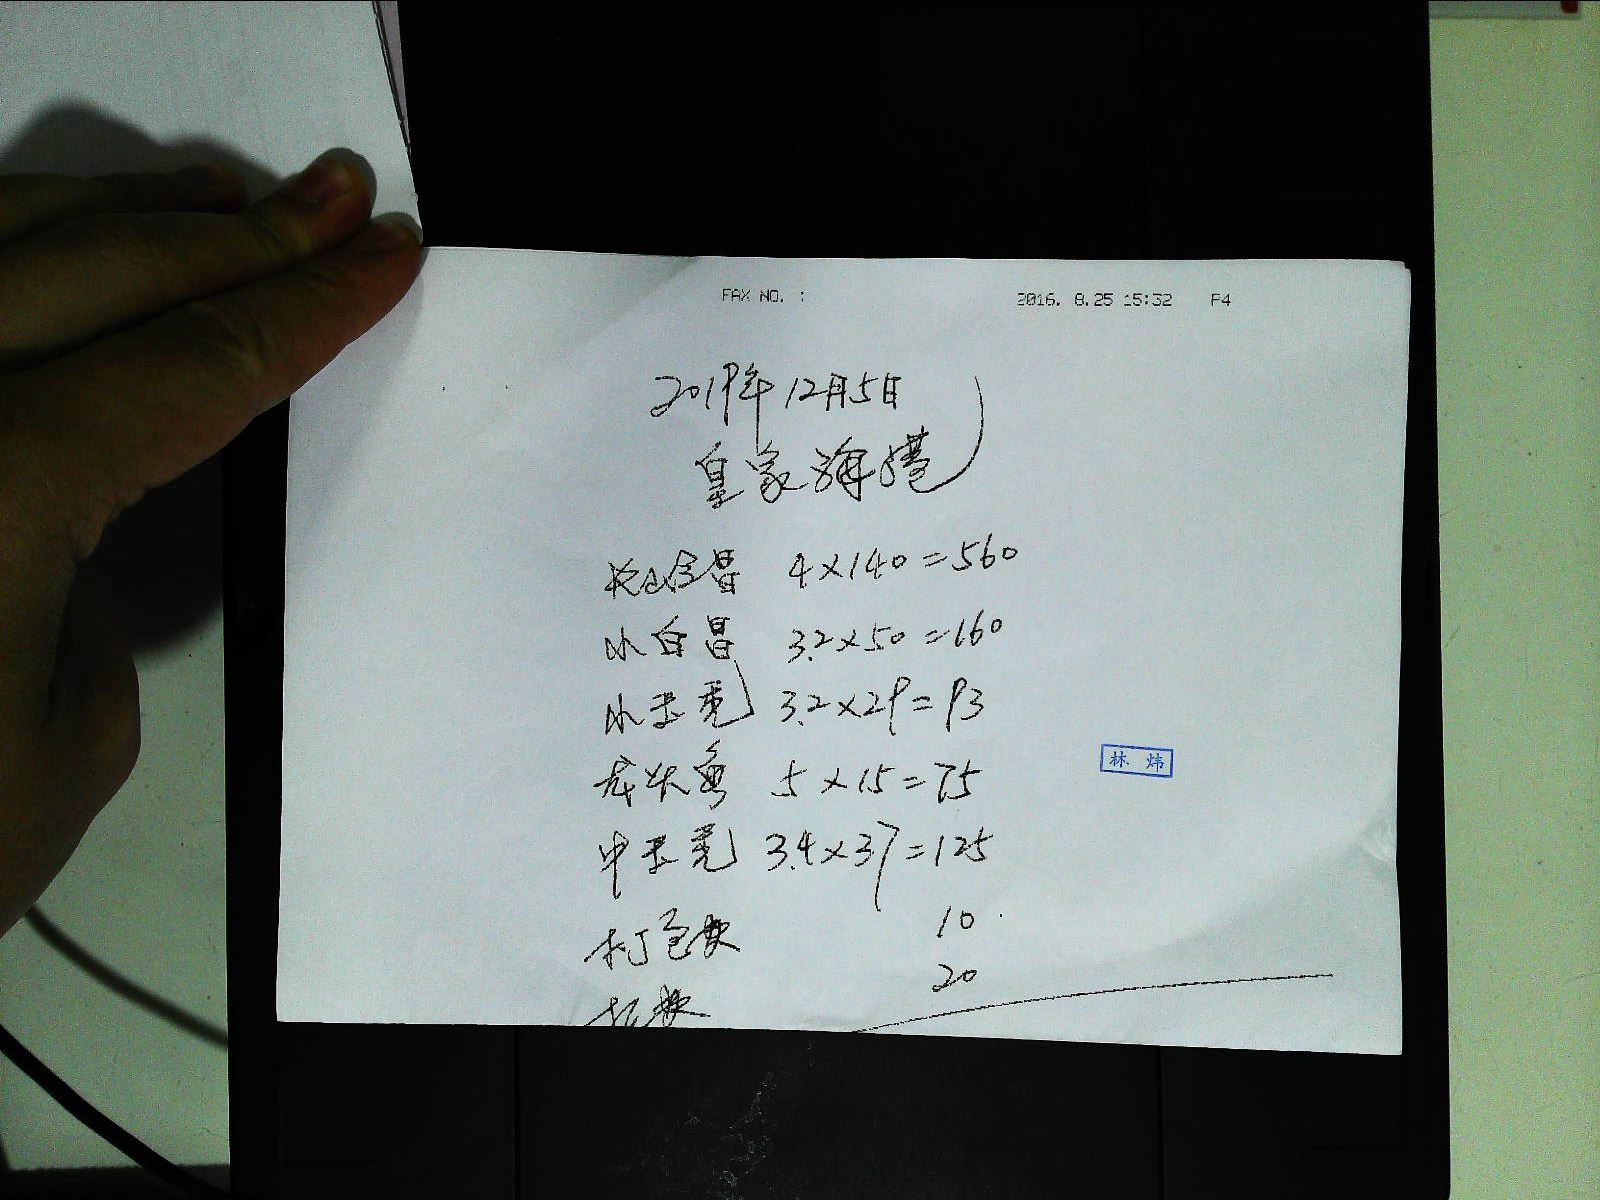 FAX NO. : 2016. 8.25 15:32 P4
2019年12月5日
皇家海港
4×140=560
小白昌 3.2×50=160
小玉秃 3.2×29=93
龙头鱼 5×15=75
林 炜
中玉秃 3.4×37=125
打包费 10
20